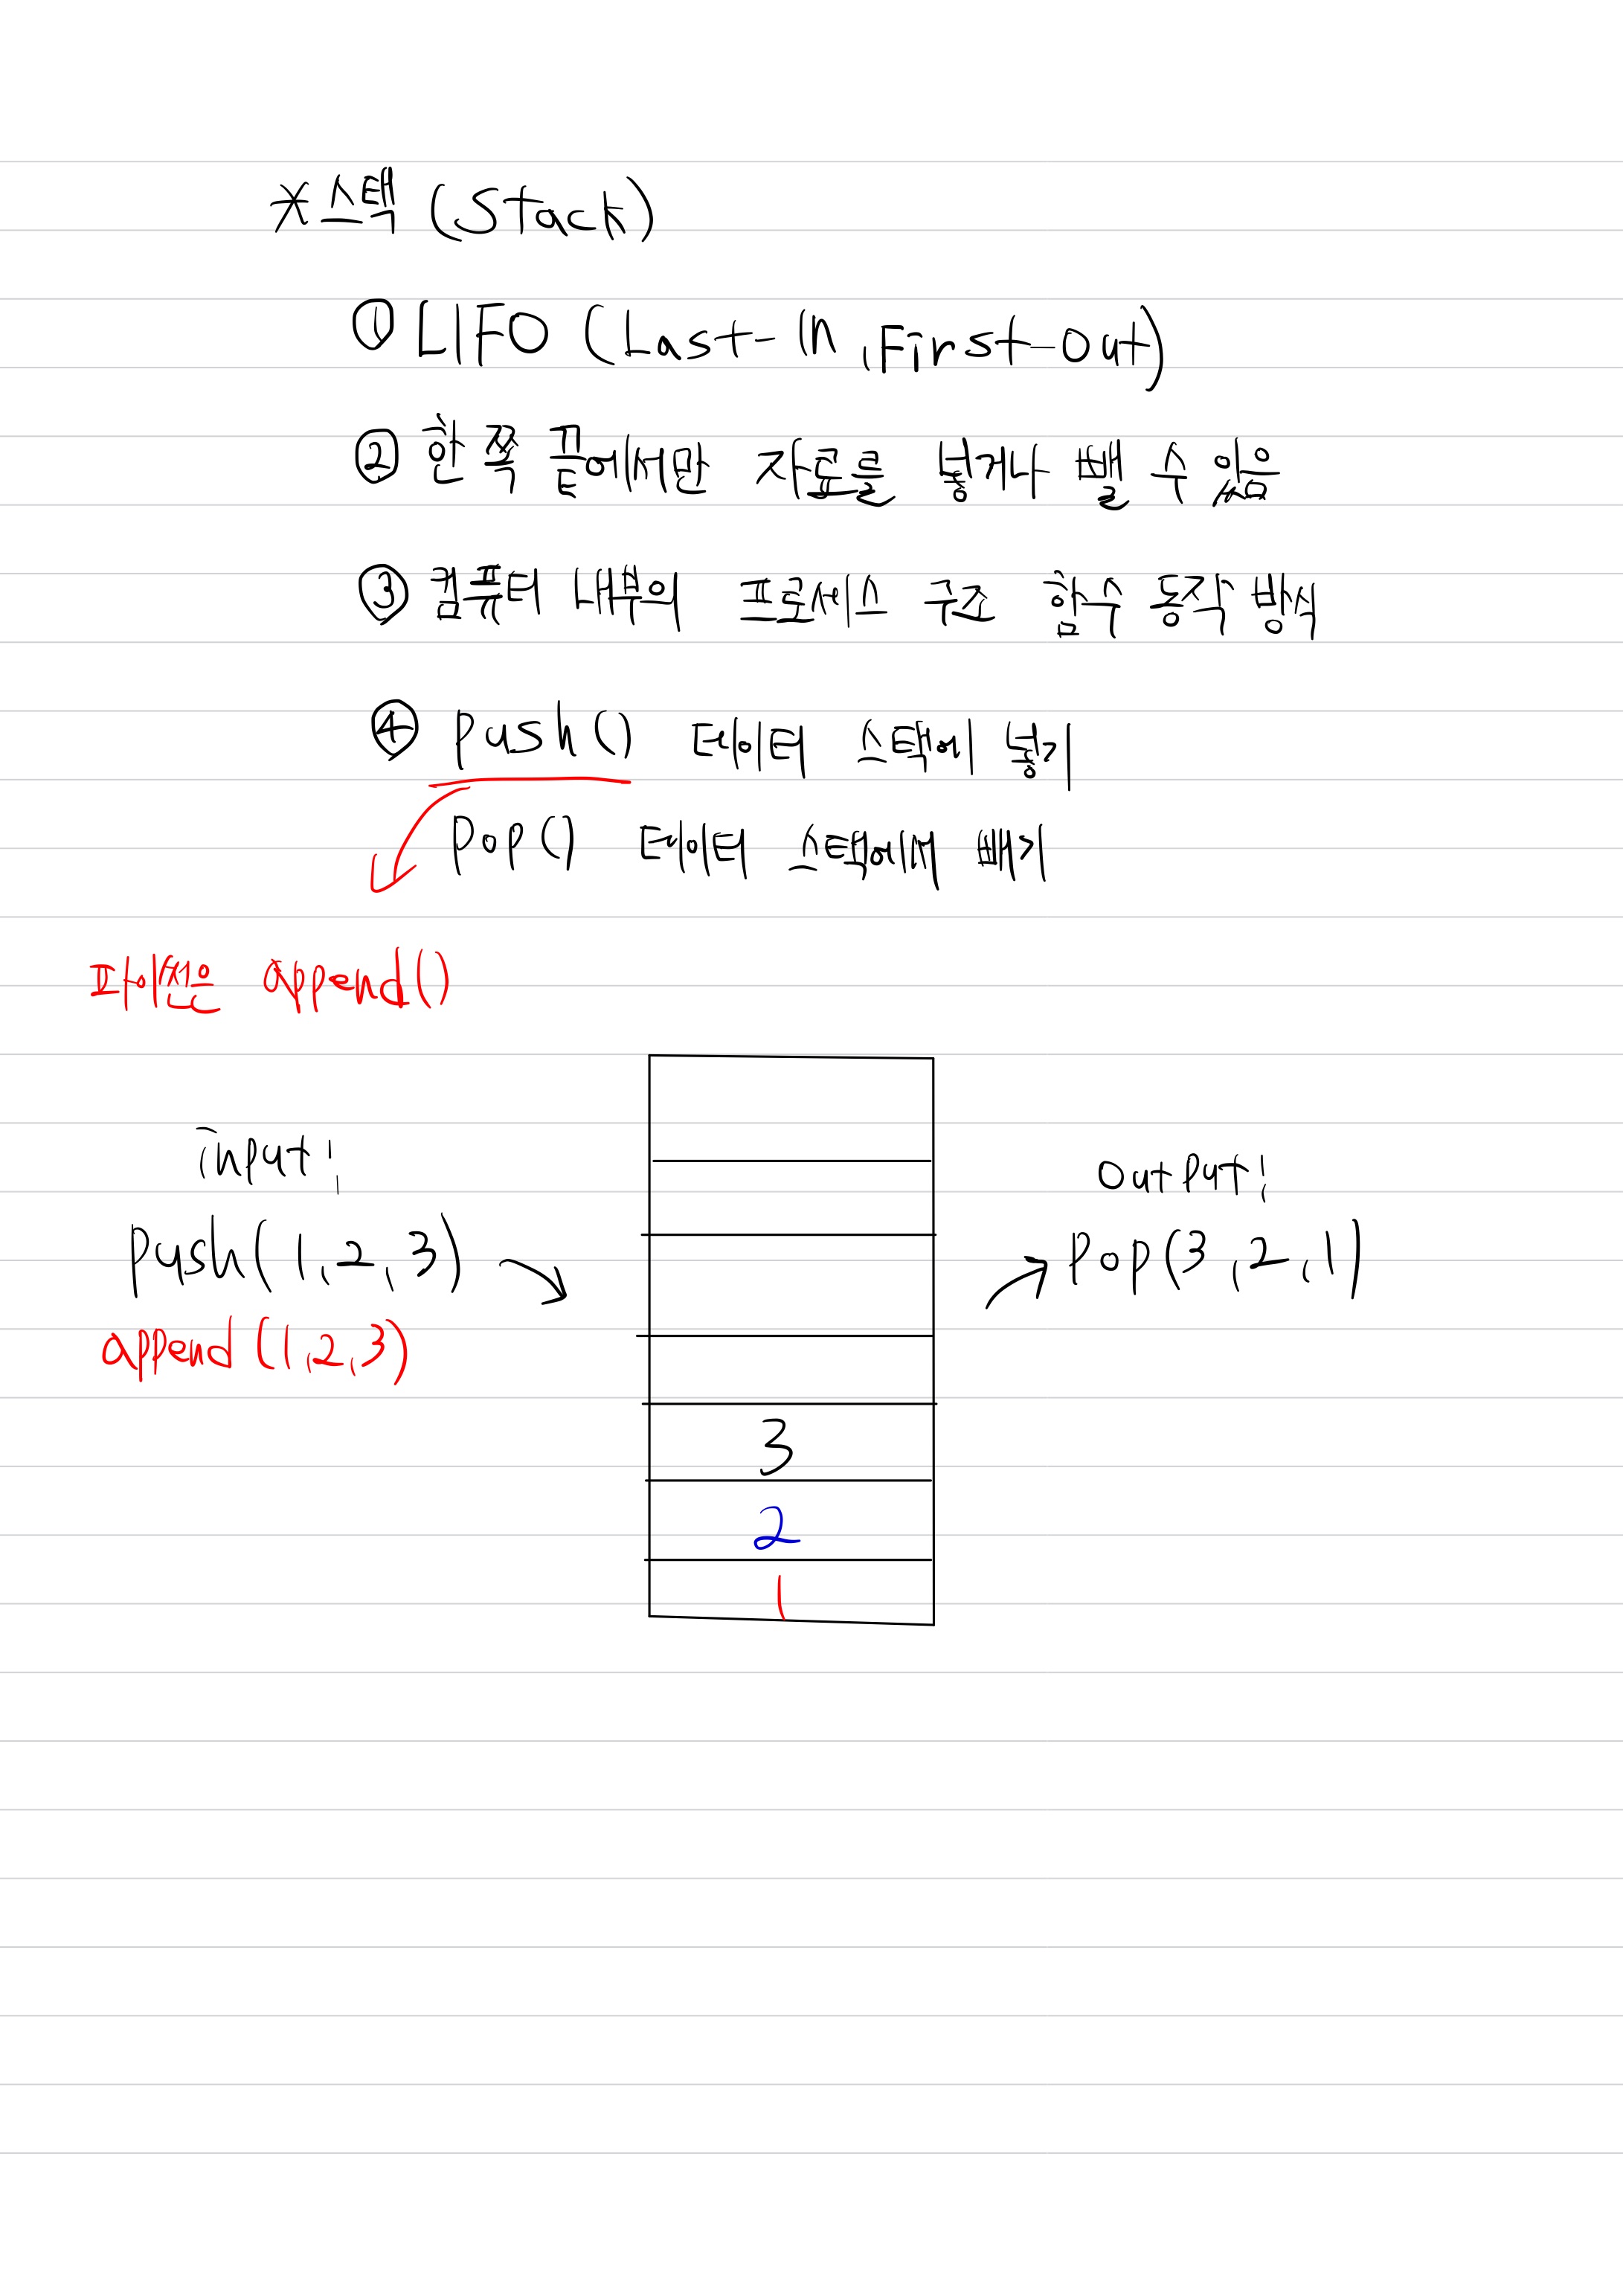 *스택 (Stack)
① LIFO (Last-In, First-Out)
② 한 쪽 끝에서만 자료를 넣거나 뺄 수 있음
③ 컴퓨터 내부의 프로세스 구조 함수 동작 방식
④ push() 데이터 스택에 넣기
pop() 데이터 스택에서 빼기
파이썬은 append()
input!
push(1,2,3)
append(1,2,3)
output!
pop(3,2,1)
3
2
1